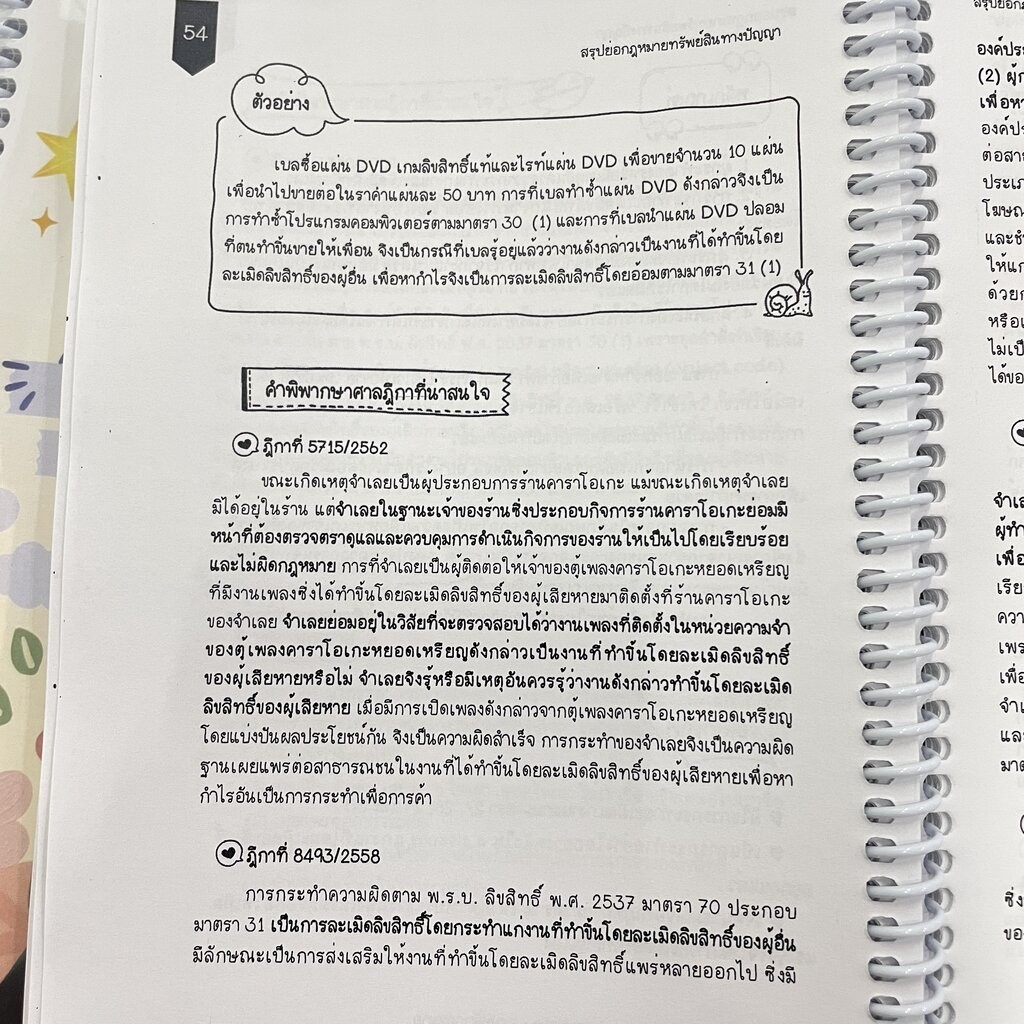 54
สรุปย่อกฎหมายทรัพย์สินทางปัญญา
ตัวอย่าง
เบลซื้อแผ่น DVD เกมลิขสิทธิ์แท้และไรท์แผ่น DVD เพื่อขายจำนวน 10 แผ่น
เพื่อนำไปขายต่อในราคาแผ่นละ 50 บาท การที่เบลทำซ้ำแผ่น DVD ดังกล่าวจึงเป็น
การทำซ้ำโปรแกรมคอมพิวเตอร์ตามมาตรา 30 (1) และการที่เบลนำแผ่น DVD ปลอม
ที่ตนทำขึ้นขายให้เพื่อน จึงเป็นกรณีที่เบลรู้อยู่แล้วว่างานดังกล่าวเป็นงานที่ได้ทำขึ้นโดย
ละเมิดลิขสิทธิ์ของผู้อื่น เพื่อหากำไรจึงเป็นการละเมิดลิขสิทธิ์โดยอ้อมตามมาตรา 31 (1)
คำพิพากษาศาลฎีกาที่น่าสนใจ
ฎีกาที่ 5715/2562
ขณะเกิดเหตุจำเลยเป็นผู้ประกอบการร้านคาราโอเกะ แม้ขณะเกิดเหตุจำเลย
มิได้อยู่ในร้าน แต่จำเลยในฐานะเจ้าของร้านซึ่งประกอบกิจการร้านคาราโอเกะย่อมมี
หน้าที่ต้องตรวจตราดูแลและควบคุมการดำเนินกิจการของร้านให้เป็นไปโดยเรียบร้อย
และไม่ผิดกฎหมาย การที่จำเลยเป็นผู้ติดต่อให้เจ้าของตู้เพลงคาราโอเกะหยอดเหรียญ
ที่มีงานเพลงซึ่งได้ทำขึ้นโดยละเมิดลิขสิทธิ์ของผู้เสียหายมาติดตั้งที่ร้านคาราโอเกะ
ของจำเลย จำเลยย่อมอยู่ในวิสัยที่จะตรวจสอบได้ว่างานเพลงที่ติดตั้งในหน่วยความจำ
ของตู้เพลงคาราโอเกะหยอดเหรียญดังกล่าวเป็นงานที่ทำขึ้นโดยละเมิดลิขสิทธิ์
ของผู้เสียหายหรือไม่ จำเลยจึงรู้หรือมีเหตุอันควรรู้ว่างานดังกล่าวทำขึ้นโดยละเมิด
ลิขสิทธิ์ของผู้เสียหาย เมื่อมีการเปิดเพลงดังกล่าวจากตู้เพลงคาราโอเกะหยอดเหรียญ
โดยแบ่งปันผลประโยชน์กัน จึงเป็นความผิดสำเร็จ การกระทำของจำเลยจึงเป็นความผิด
ฐานเผยแพร่ต่อสาธารณชนในงานที่ได้ทำขึ้นโดยละเมิดลิขสิทธิ์ของผู้เสียหายเพื่อหา
กำไรอันเป็นการกระทำเพื่อการค้า
ฎีกาที่ 8493/2558
การกระทำความผิดตาม พ.ร.บ. ลิขสิทธิ์ พ.ศ. 2537 มาตรา 70 ประกอบ
มาตรา 31 เป็นการละเมิดลิขสิทธิ์โดยกระทำแก่งานที่ทำขึ้นโดยละเมิดลิขสิทธิ์ของผู้อื่น
มีลักษณะเป็นการส่งเสริมให้งานที่ทำขึ้นโดยละเมิดลิขสิทธิ์แพร่หลายออกไป ซึ่งมี